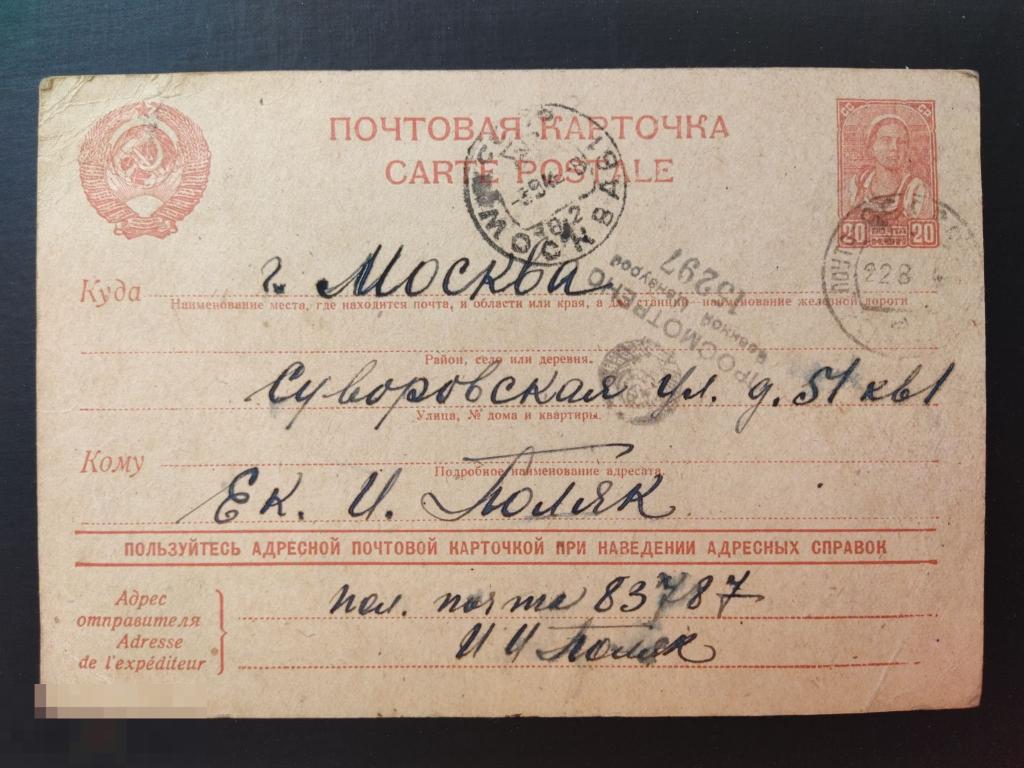 ПОЧТОВАЯ КАРТОЧКА
CARTE POSTALE
СС СР
20 ПОЧТА 20
228
Куда г. Москва
Наименование места, где находится почта, и области или края, а для станций—наименование железной дороги
ПРОСМОТРЕНО
Военной Цензурой
13297
Район, село или деревня.
Суворовская ул. д. 51 кв 1
Улица, № дома и квартиры.
Кому
Подробное наименование адресата.
Ек. И. Поляк
ПОЛЬЗУЙТЕСЬ АДРЕСНОЙ ПОЧТОВОЙ КАРТОЧКОЙ ПРИ НАВЕДЕНИИ АДРЕСНЫХ СПРАВОК
Адрес
отправителя
Adresse
de l'expéditeur
пол. почта 83787
И И Поляк